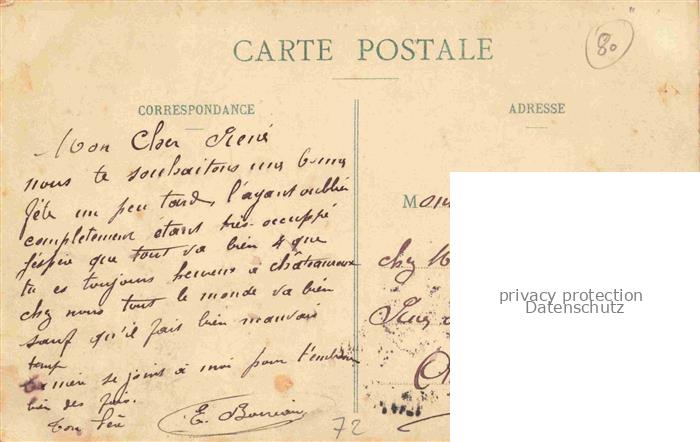 80
CARTE POSTALE
CORRESPONDANCE
ADRESSE
Mon Cher René
nous te souhaitons une bonne
fête un peu tard, l'ayant oublié
completement étant très occuppé
j'éspère que tout va bien & que
tu es toujours heureux à châteauroux
chez nous tout le monde va bien
sauf qu'il fait bien mauvais
temp
ta mère se joint à moi pour t'embrasser
bien des fois.
ton Père
E.
M
chez
privacy protection
Datenschutz
72